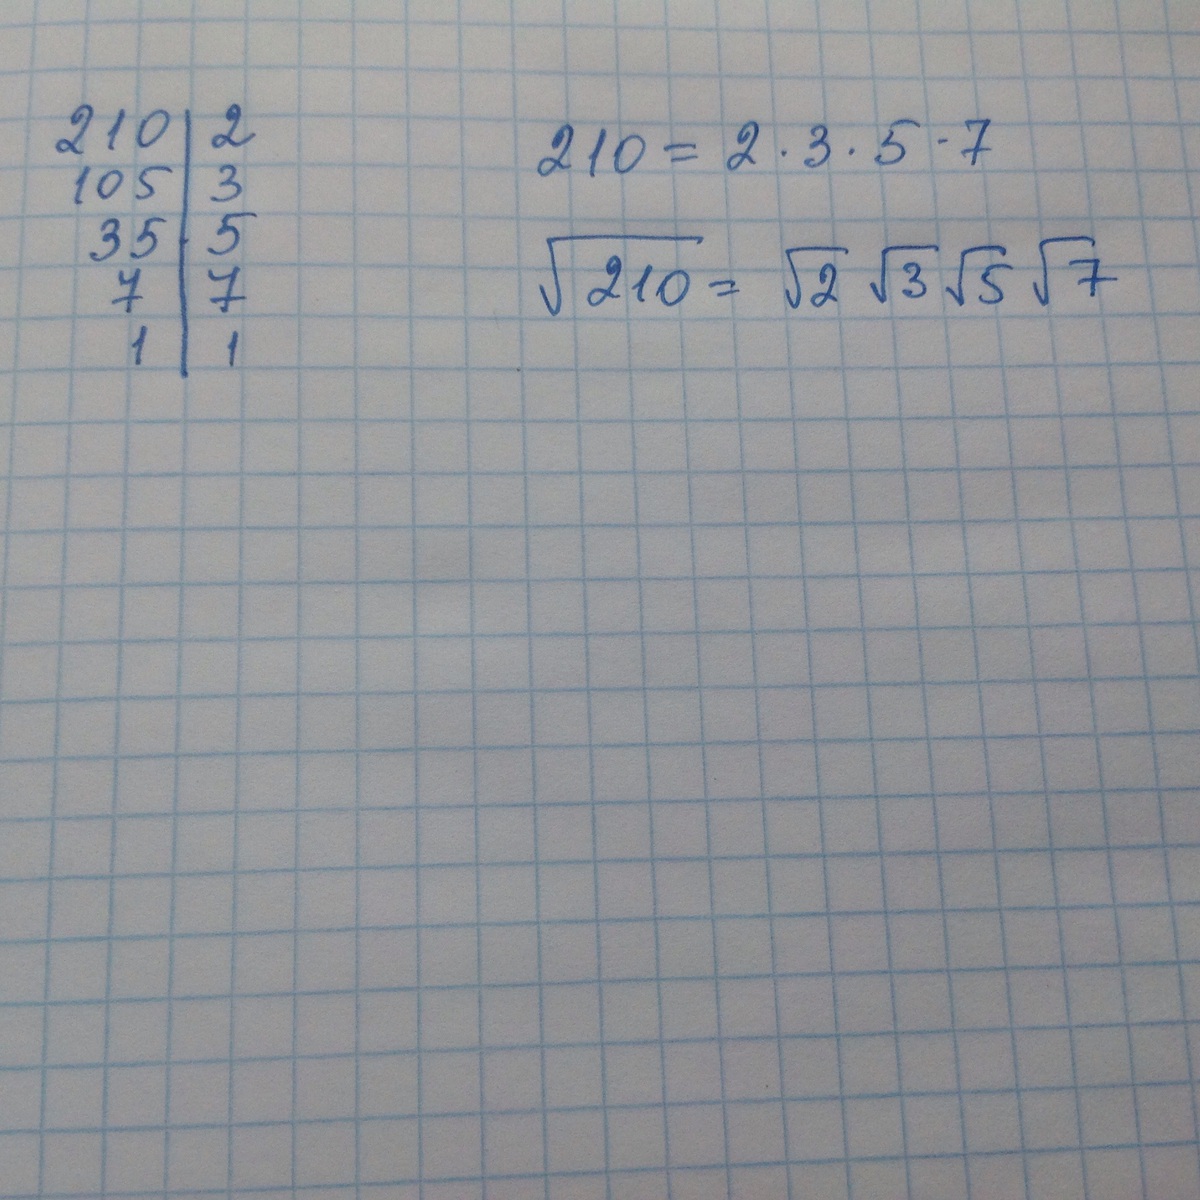 210 | 2
105 | 3
35 | 5
7 | 7
1 | 1
210 = 2 · 3 · 5 · 7
√210 = √2 √3 √5 √7